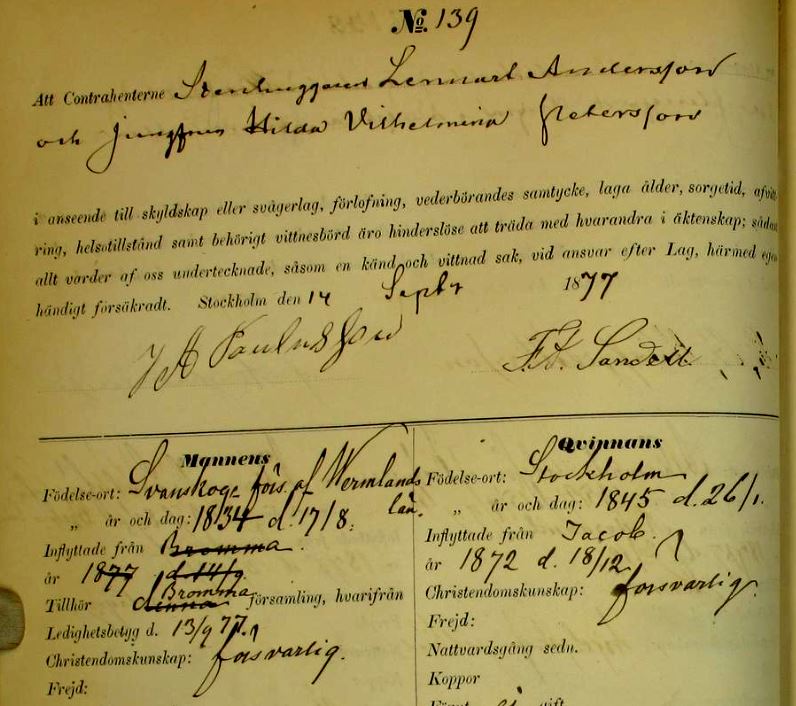 № 139
Att Contrahenterne Stenhuggaren Lennart Andersson
och Jungfrun Hilda Vilhelmina Petersson
i anseende till skyldskap eller svågerlag, förlofning, vederbörandes samtycke, laga ålder, sorgetid, afvitt-
ring, helsotillstånd samt behörigt vittnesbörd äro hinderslöse att träda med hvarandra i äktenskap; sådant
allt varder af oss undertecknade, såsom en känd och vittnad sak, vid ansvar efter Lag, härmed egen-
händigt försäkradt. Stockholm den 14 Septbr 1877
J A Paulusson F. A. Sandell
Mannens
Födelse-ort: Svanskoga förs. af Wermlands
län.
„ år och dag: 1834 d. 17/8.
Inflyttade från Bromma.
år 1877 d. 14/9.
Bromma
Tillhör denna församling, hvarifrån
Ledighetsbetyg d. 13/9 77.
Christendomskunskap: försvarlig.
Frejd:
Qvinnans
Födelse-ort: Stockholm
„ år och dag: 1845 d. 26/1.
Inflyttade från Jacob.
år 1872 d. 18/12
Christendomskunskap: försvarlig.
Frejd:
Nattvardsgång sedn.
Koppor
Förut ej gift